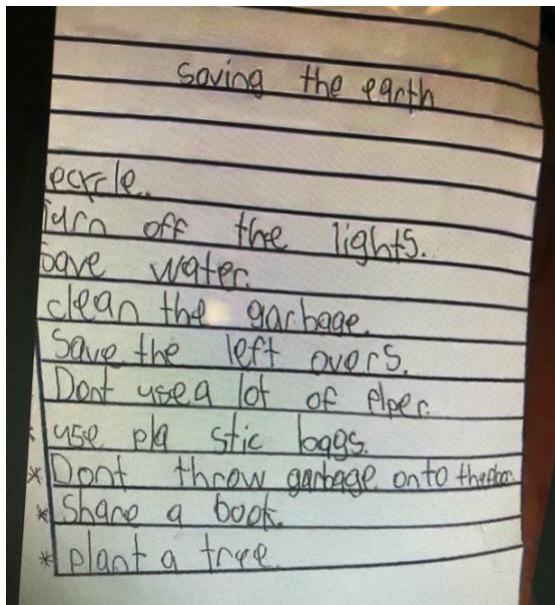 saving the earth
ecycle.
Turn off the lights.
Save water.
clean the garbage.
Save the left overs.
Dont use a lot of
* use pla stic baggs.
* Dont throw garbage onto the
* Share a book.
* plant a tree